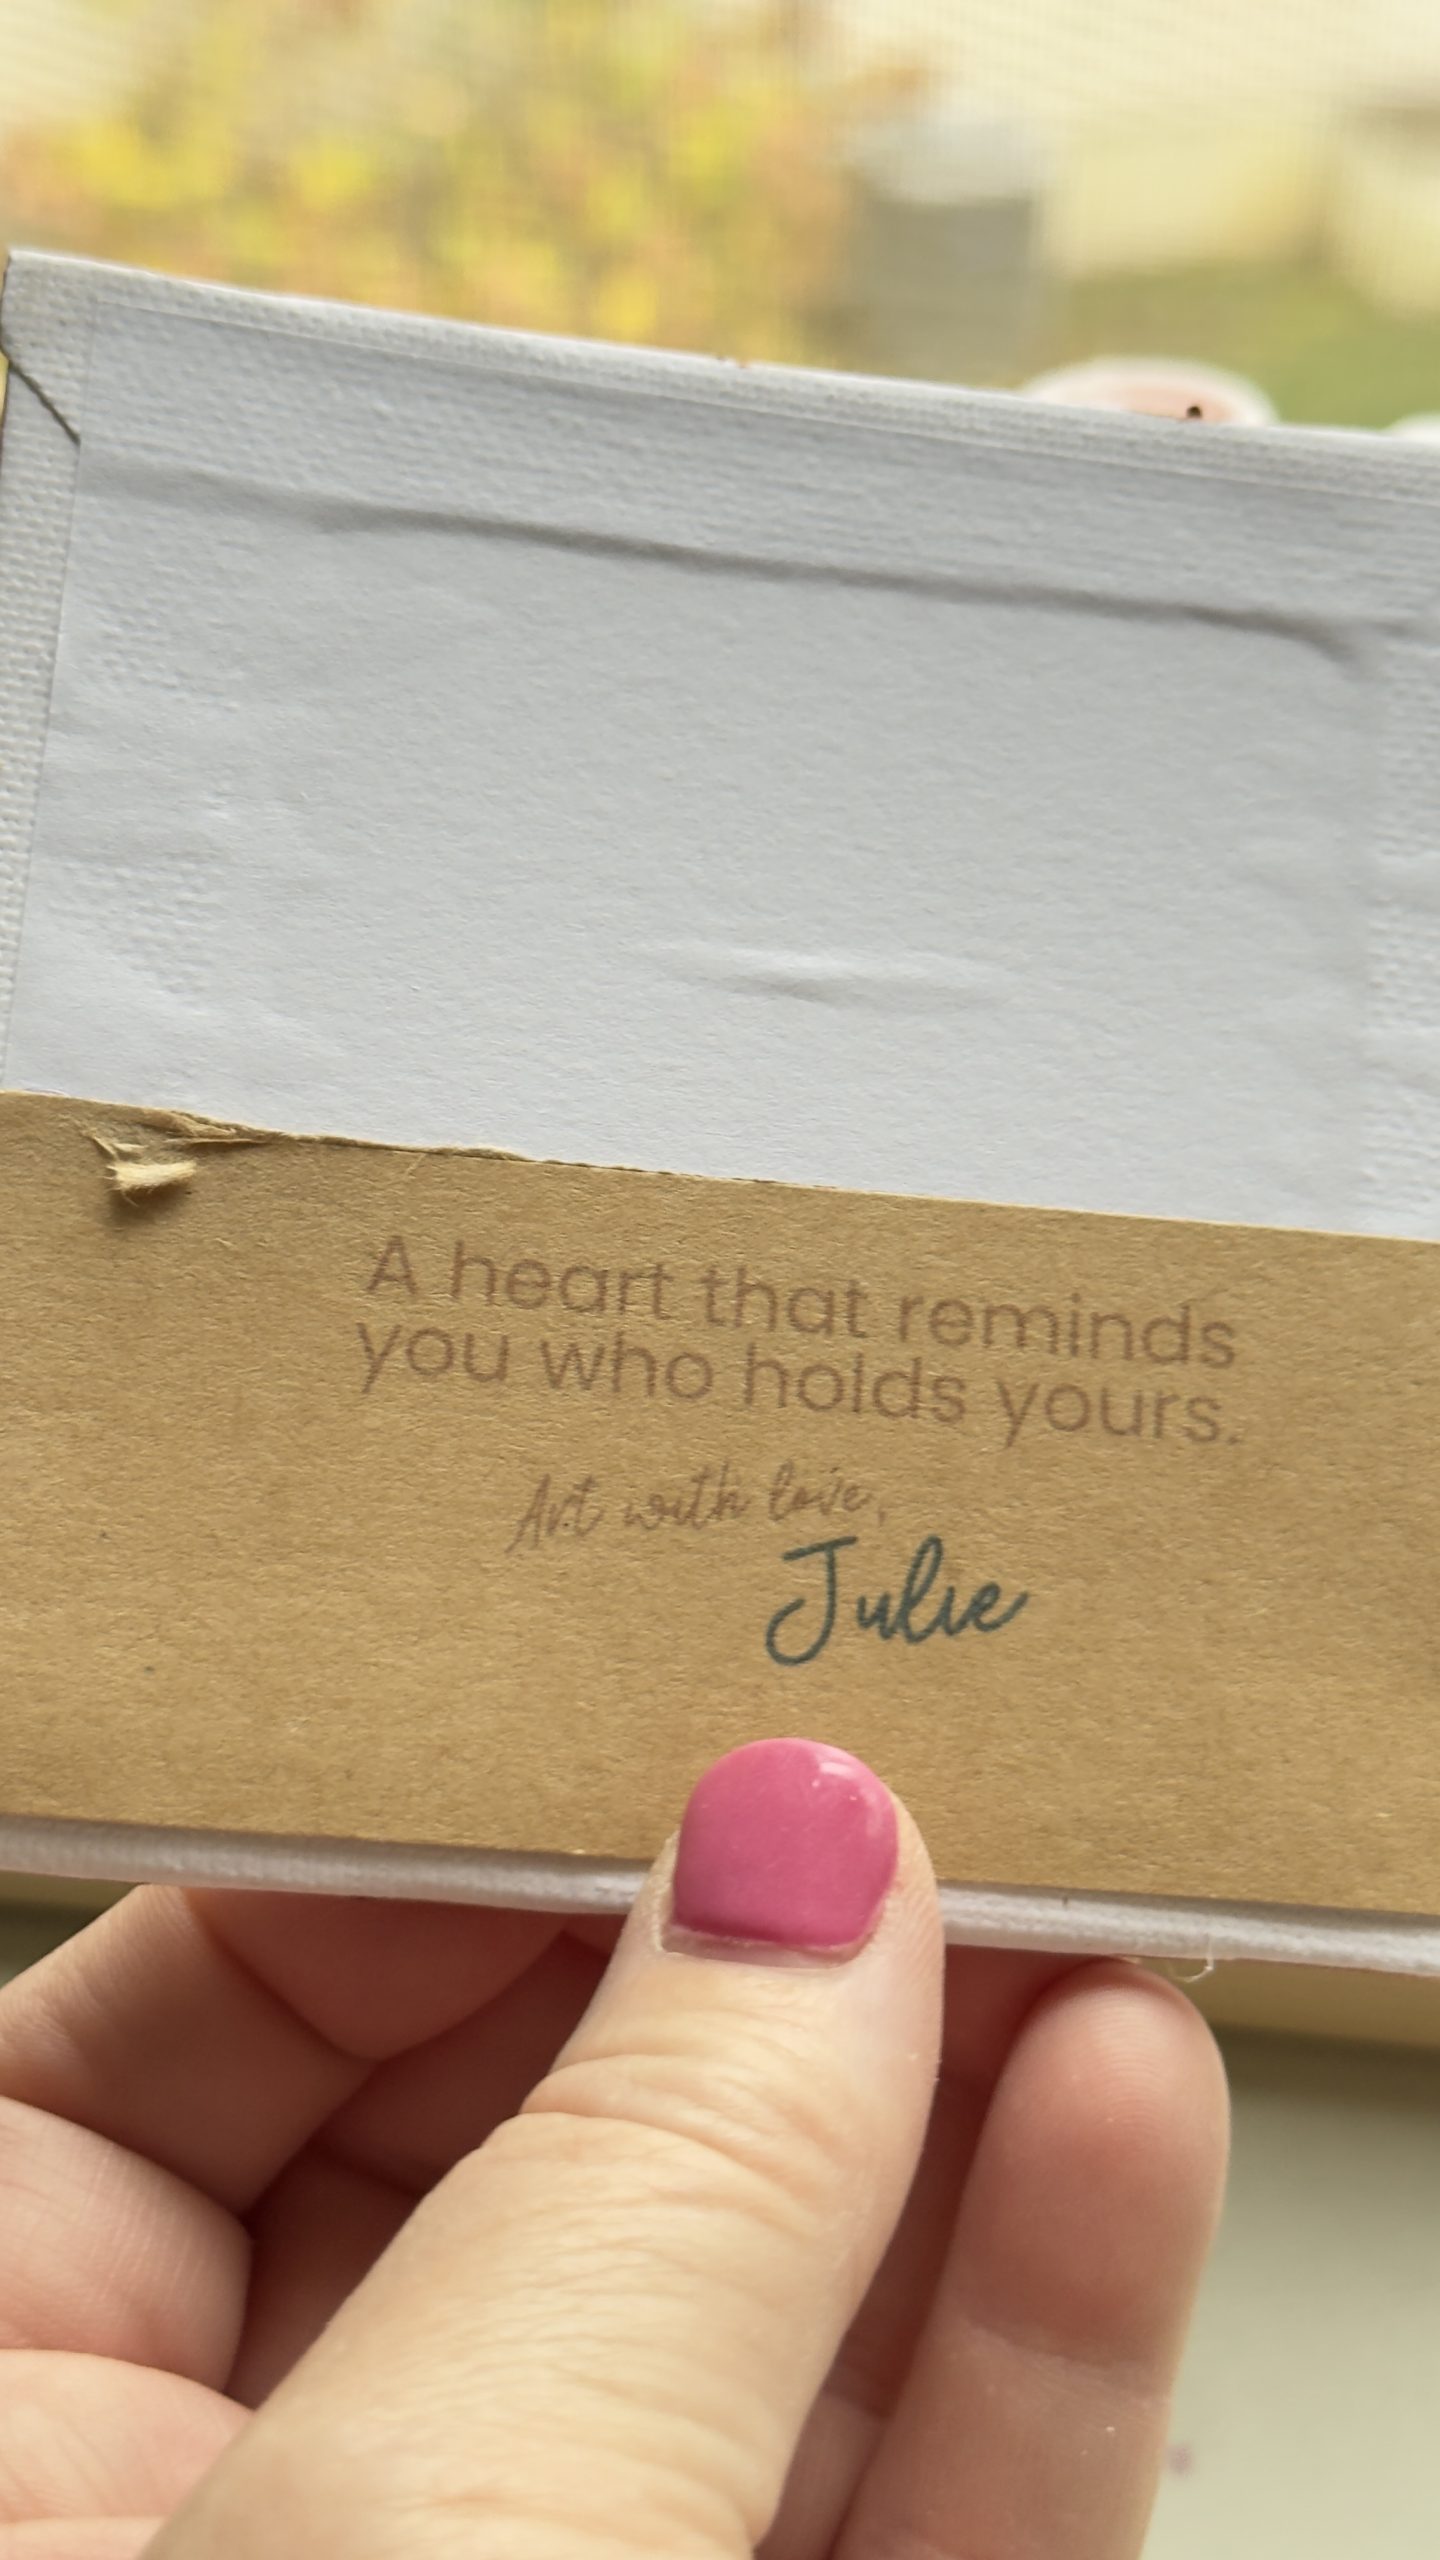 A heart that reminds
you who holds yours.
Art with love,
Julie